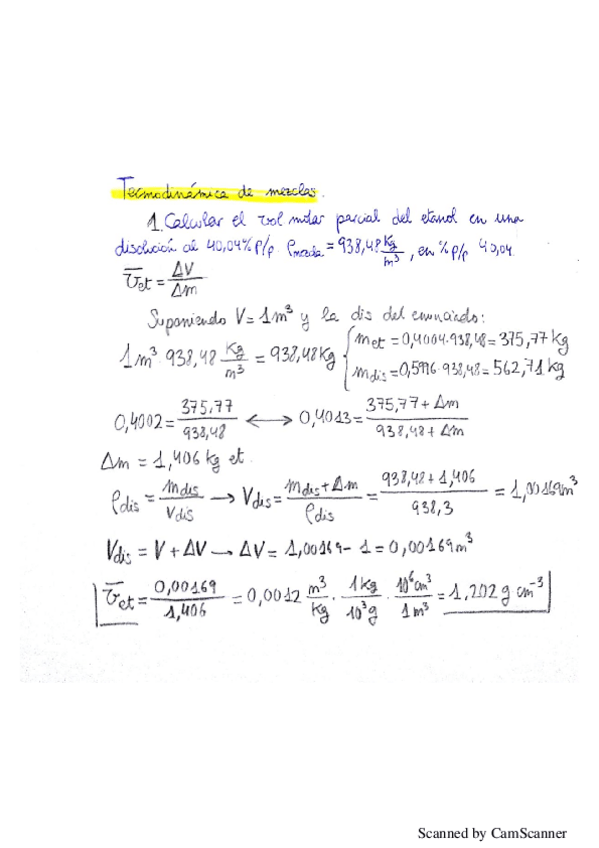 Termodinámica de mezclas.
1. Calcular el vol molar parcial del etanol en una
disolución al 40,04% p/p ρmezcla = 938,48 Kg/m³, en % p/p 40,04.
v̅et = ΔV/Δm
Suponiendo V = 1m³ y la dis del enunciado:
1m³ · 938,48 Kg/m³ = 938,48 Kg { met = 0,4004 · 938,48 = 375,77 Kg
mdis = 0,5996 · 938,48 = 562,71 kg
0,4002 = 375,77/938,48 ⟷ 0,4013 = 375,77 + Δm/938,48 + Δm
Δm = 1,406 kg et.
ρdis = mdis/Vdis → Vdis = mdis + Δm/ρdis = 938,48 + 1,406/938,3 = 1,00169m³
Vdis = V + ΔV → ΔV = 1,00169 - 1 = 0,00169 m³
v̅et = 0,00169/1,406 = 0,0012 m³/Kg · 1Kg/10³g · 10⁶cm³/1m³ = 1,202 g cm⁻³
Scanned by CamScanner